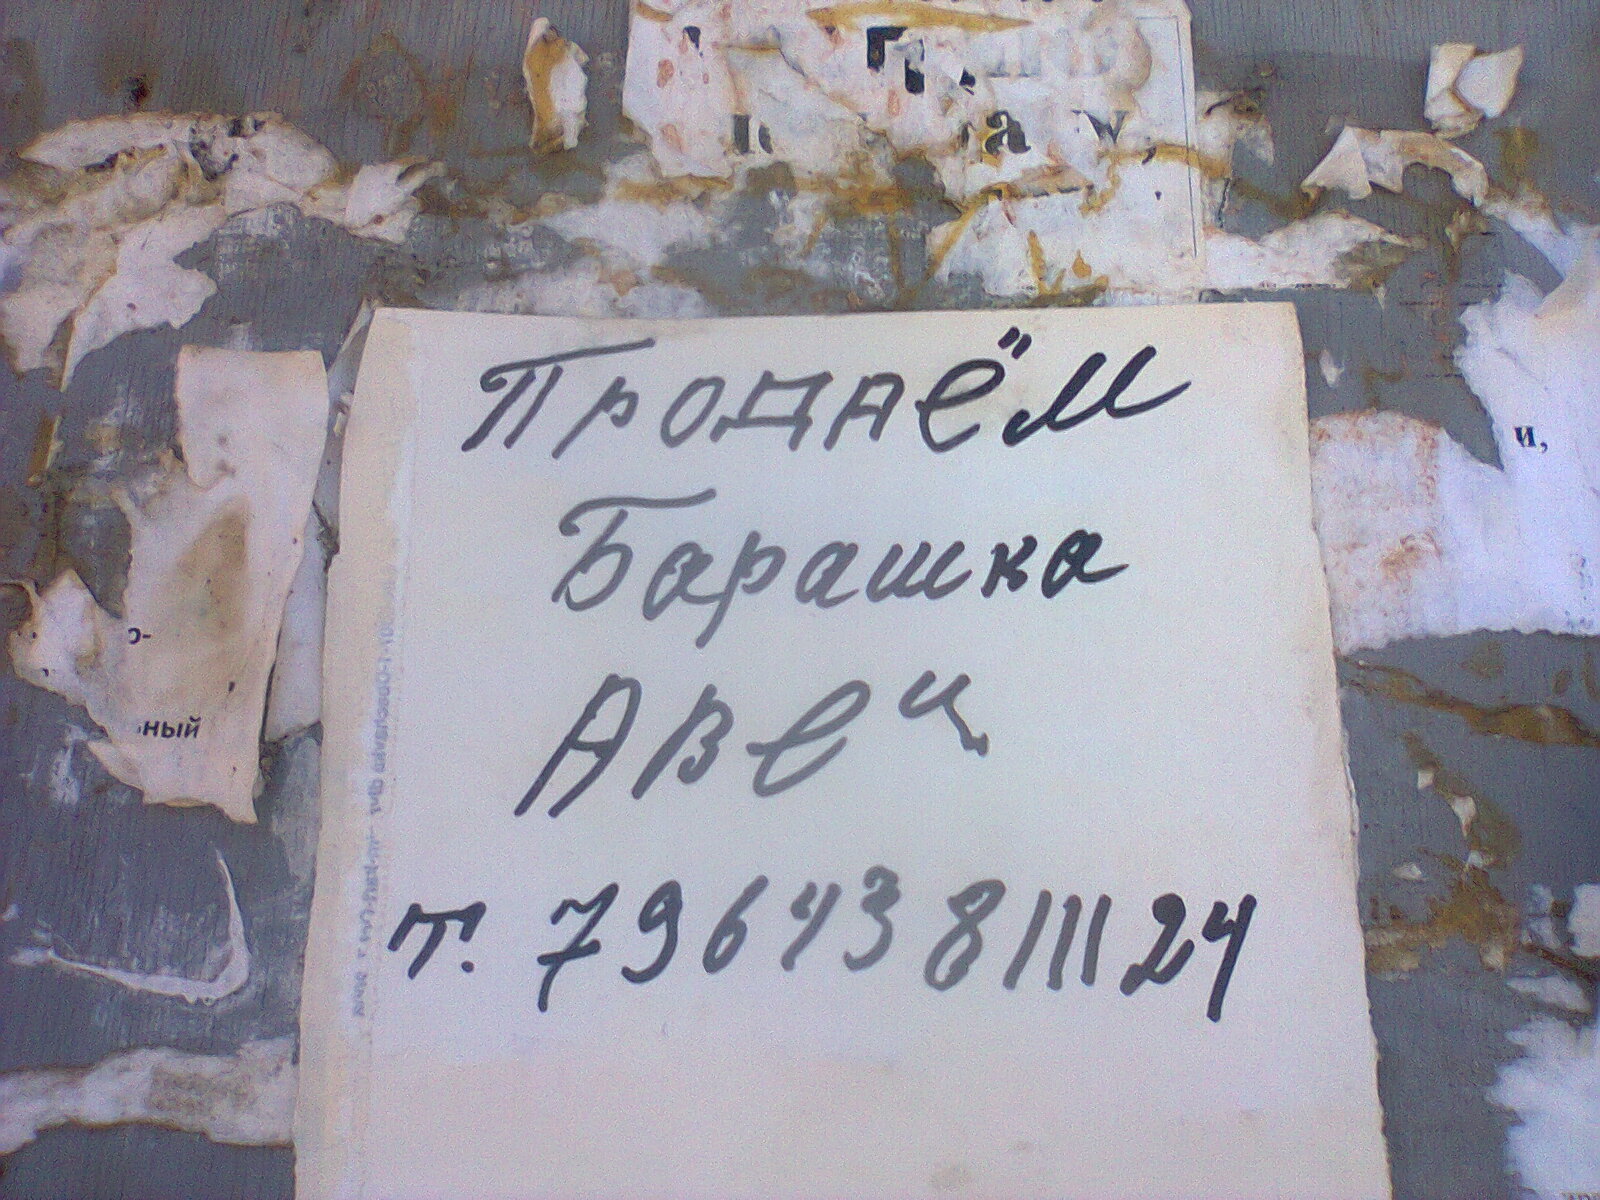 и,
Продаём
Барашка
Авец
ный
т. 79643811124